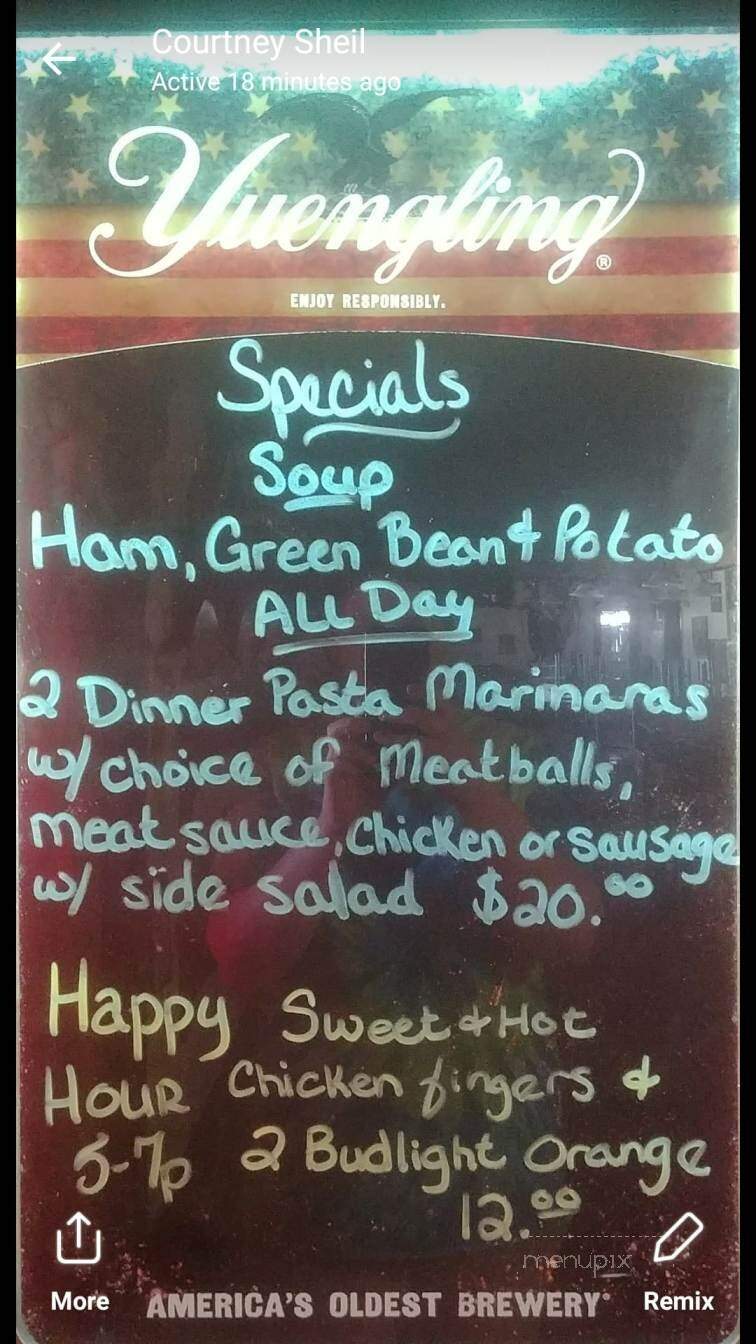 Courtney Sheil
Active 18 minutes ago
Yuengling®
ENJOY RESPONSIBLY.
Specials
Soup
Ham, Green Bean & Potato
ALL Day
2 Dinner Pasta Marinaras
w/ choice of Meatballs,
meat sauce, Chicken or sausage
w/ side salad $20.00
Happy Sweet & Hot
HOUR Chicken fingers &
5-7p 2 Budlight Orange
12.00
menupix
More AMERICA'S OLDEST BREWERY® Remix